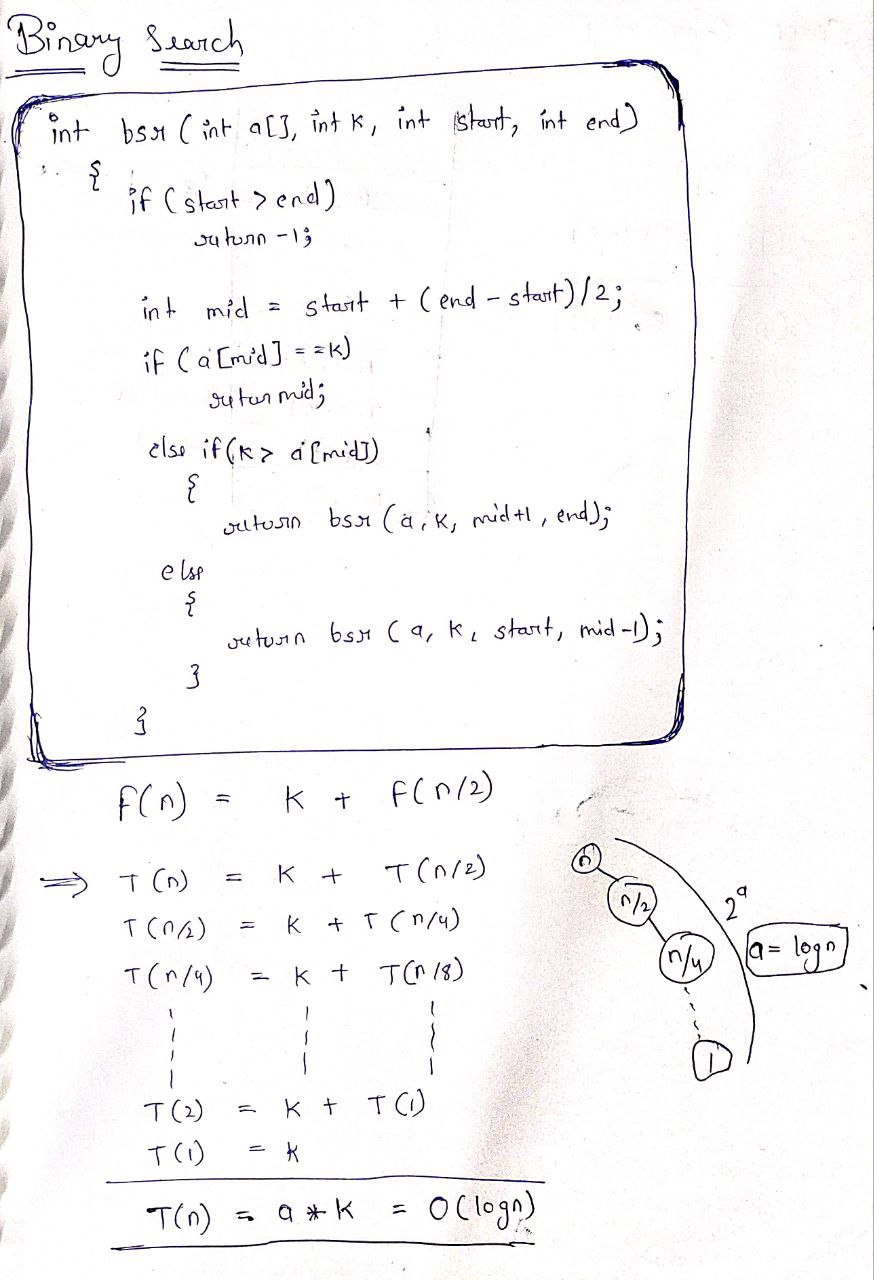 Binary Search
int bsr (int a[], int K, int start, int end)
{
if (start > end)
return -1;
int mid = start + (end - start)/2;
if (a[mid] == K)
retur mid;
else if (K > a[mid])
{
return bsr (a, K, mid+1, end);
else
{
return bsr (a, K, start, mid-1);
}
}
F(n) = K + F(n/2)
⇒ T(n) = K + T(n/2)
T(n/2) = K + T(n/4)
T(n/4) = K + T(n/8)
T(2) = K + T(1)
T(1) = K
T(n) = a * K = O(logn)
n
n/2
n/4
1
2^a
a = logn